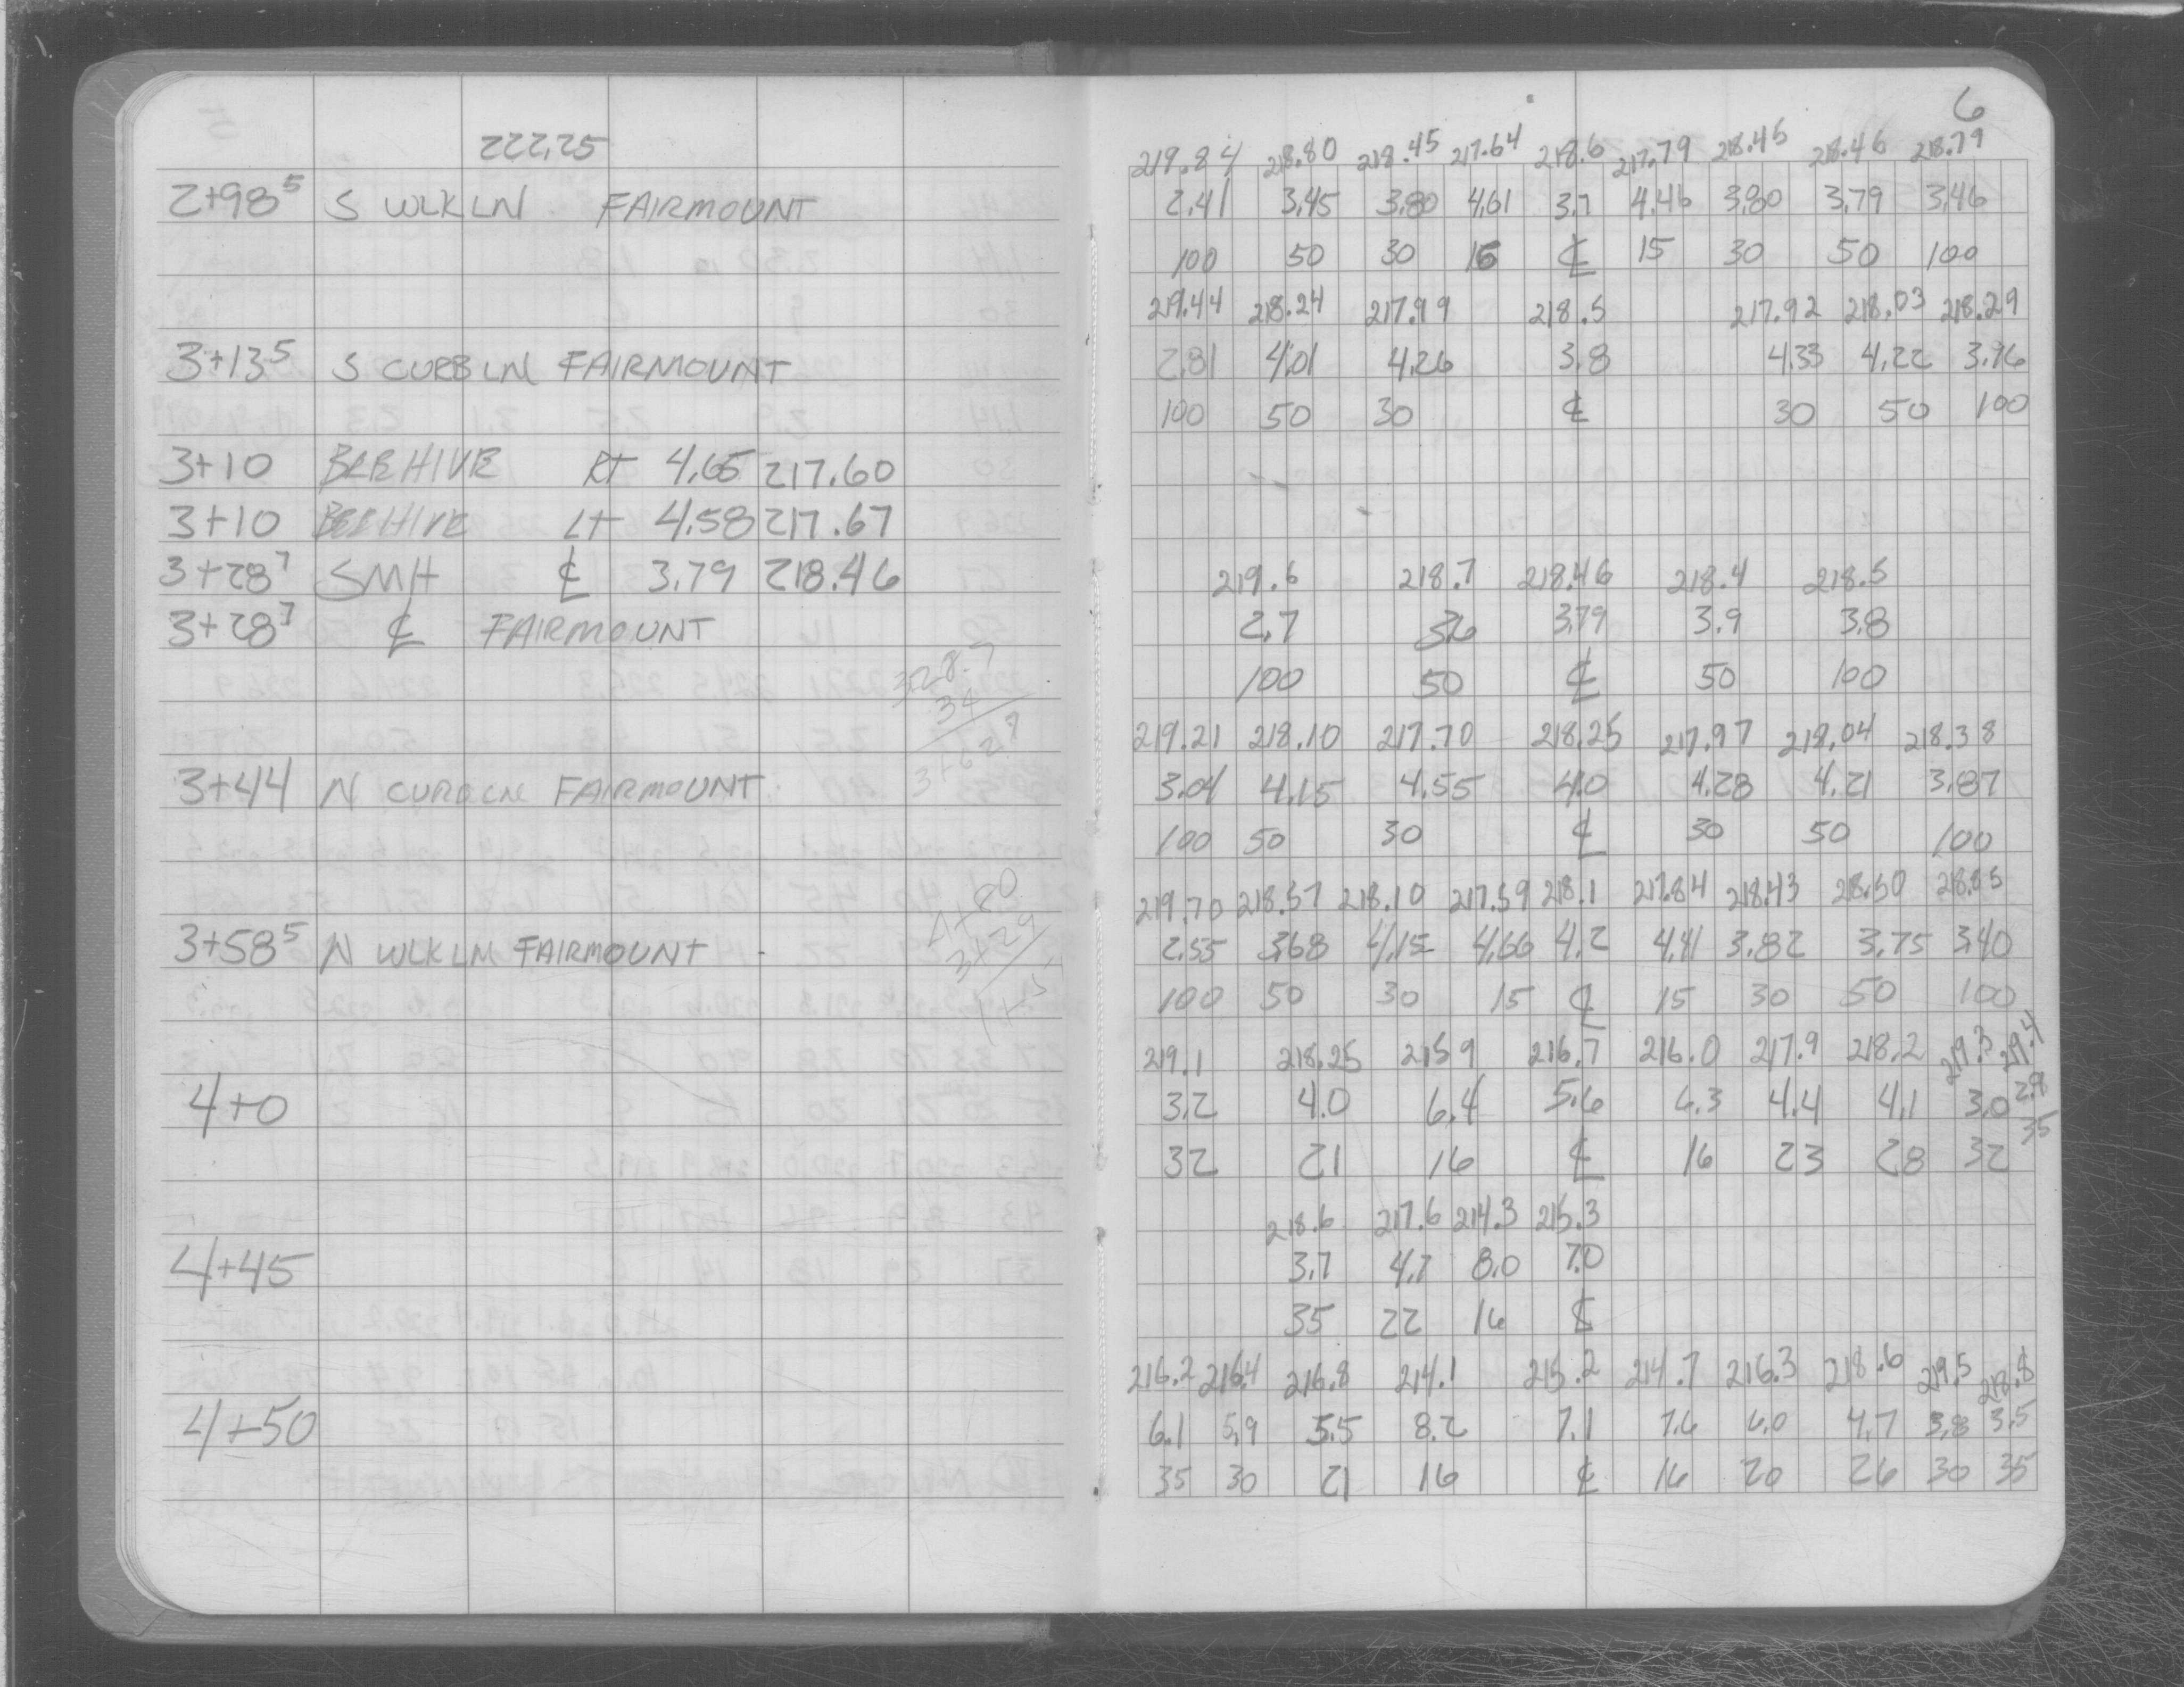 222.25
2+98⁵ S WLKLN FAIRMOUNT
3+13⁵ S CURBLN FAIRMOUNT
3+10 BEEHIVE Rt 4.65 217.60
3+10 BEEHIVE Lt 4.58 217.67
3+28⁷ SMH ℄ 3.79 218.46
3+28⁷ ℄ FAIRMOUNT
328.7
34
3+62.7
3+44 N CURBLN FAIRMOUNT
4+80
3+29
3+58⁵ N WLKLN FAIRMOUNT
4+0
4+45
4+50
6
219.84 218.80 218.45 217.64 218.6 217.79 218.45 218.46 218.79
2.41 3.45 3.80 4.61 3.7 4.46 3.80 3.79 3.46
100 50 30 15 ℄ 15 30 50 100
219.44 218.24 217.99 218.5 217.92 218.03 218.29
2.81 4.01 4.26 3.8 4.33 4.22 3.96
100 50 30 ℄ 30 50 100
219.6 218.7 218.46 218.4 218.5
2.7 3.6 3.79 3.9 3.8
100 50 ℄ 50 100
219.21 218.10 217.70 218.25 217.97 218.04 218.38
3.04 4.15 4.55 4.0 4.28 4.21 3.87
100 50 30 ℄ 30 50 100
219.70 218.57 218.10 217.59 218.1 217.84 218.43 218.50 218.85
2.55 3.68 4.15 4.66 4.2 4.41 3.82 3.75 3.40
100 50 30 15 ℄ 15 30 50 100
219.1 218.25 215.9 216.7 216.0 217.9 218.2 219.3 219.4
3.2 4.0 6.4 5.6 6.3 4.4 4.1 3.0 2.8
32 21 16 ℄ 16 23 28 32 35
218.6 217.6 214.3 215.3
3.7 4.7 8.0 7.0
35 22 16 ℄
216.2 216.4 216.8 214.1 215.2 214.7 216.3 218.6 219.5 218.8
6.1 5.9 5.5 8.2 7.1 7.6 6.0 4.7 3.8 3.5
35 30 21 16 ℄ 16 20 26 30 35